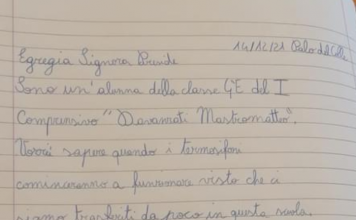 14/12/21 Palo del Colle
Egregia Signora Preside
Sono un'alunna della classe 4E del I
Comprensivo "Davanzati Mastromatteo".
Vorrei sapere quando i termosifoni
cominceranno a funzionare visto che ci
siamo trasferiti da poco in questa scuola.